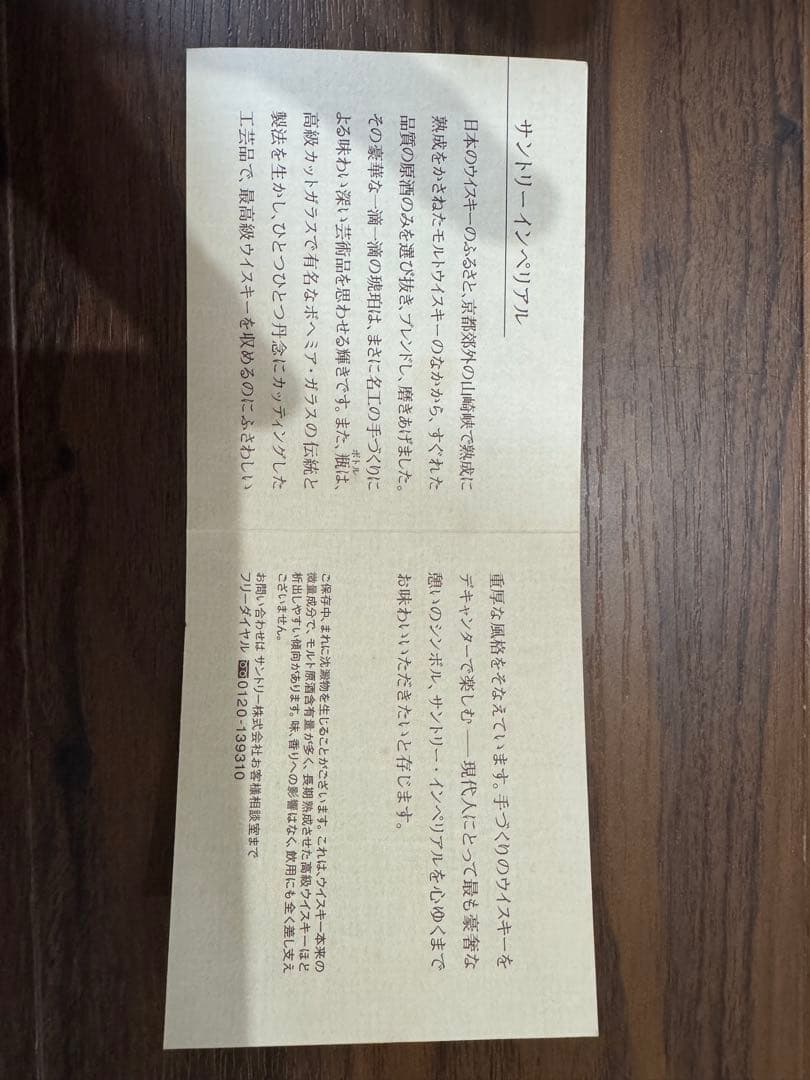 サントリーインペリアル
日本のウイスキーのふるさと、京都郊外の山崎峡で熟成に
熟成をかさねたモルトウイスキーのなかから、すぐれた
品質の原酒のみを選び抜き、ブレンドし、磨きあげました。
その豪華な一滴一滴の琥珀は、まさに名工の手づくりに
よる味わい深い芸術品を思わせる輝きです。また、瓶は、
ボトル
高級カットガラスで有名なボヘミア・ガラスの伝統と
製法を生かし、ひとつひとつ丹念にカッティングした
工芸品で、最高級ウイスキーを収めるのにふさわしい
重厚な風格をそなえています。手づくりのウイスキーを
デキャンターで楽しむ——現代人にとって最も豪奢な
憩いのシンボル、サントリー・インペリアルを心ゆくまで
お味わいいただきたいと存じます。
ご保存中、まれに沈澱物を生じることがございます。これは、ウイスキー本来の
微量成分で、モルト原酒含有量が多く、長期熟成させた高級ウイスキーほど
析出しやすい傾向があります。味、香りへの影響はなく、飲用にも全く差し支え
ございません。
お問い合わせは サントリー株式会社お客様相談室まで
フリーダイヤル 0120-139310